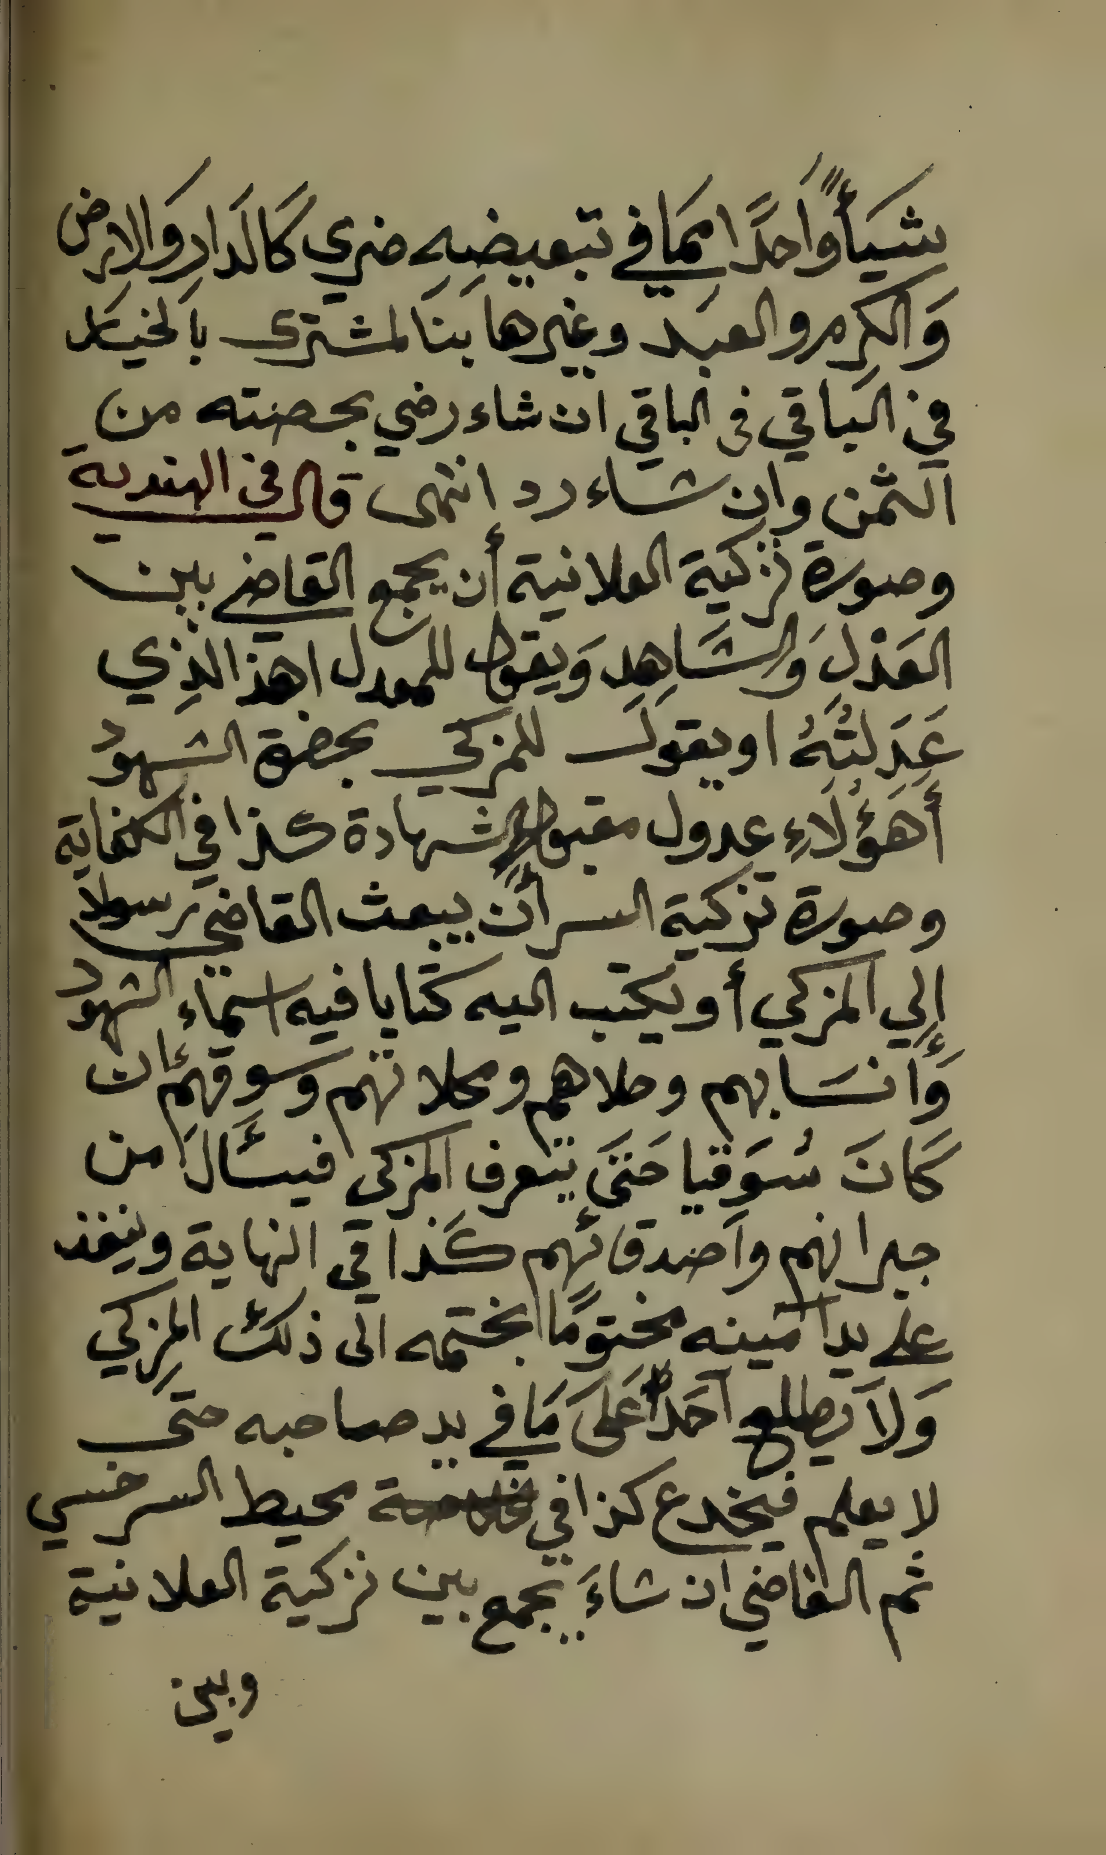 شيأ واحدا مما في تبعيضه ضرر كالدار والارض
وَالكرم والعبد وغيرها بنا لمشترى بالخيار
في الباقي فى الباقي ان شاء رضي بحصته من
الثمن وان شاء رد انتهى قال في الهندية
وصورة تزكية العلانية أن يجمع القاضي بين
العَدْلِ وَالشَاهِدِ وَيقول للمعدل اهذ الذِي
عَدَلتُهُ او يقول للمزكي بحضرة الشهود
أَهَؤُلَاءِ عدول مقبول الشهادة كذا في الكفاية
وصورة تزكية السر أن يبعث القاضي رسولا
إلي المزكي أو يكتب اليه كتابا فيه اسماء الشهود
وَأنسَابهم وحلاهم ومحلاتهم وسوقهم ان
كَانَ سُوَقيا حَتىَ يتعرف المزكى فيسأل من
جيرانهم واصدقائهم كَذا في النهاية وينفذ
على يد امينه مختومًا بختمه الى ذلك المزكي
وَلاَ يطلع أحَداً عَلىَ مَا في يد صاحبه حتى
لا يعلم فيخدع كذا في محيط السرخسي
ثم القاضي ان شاءَ يجمع بين تزكية العلانية
وبين